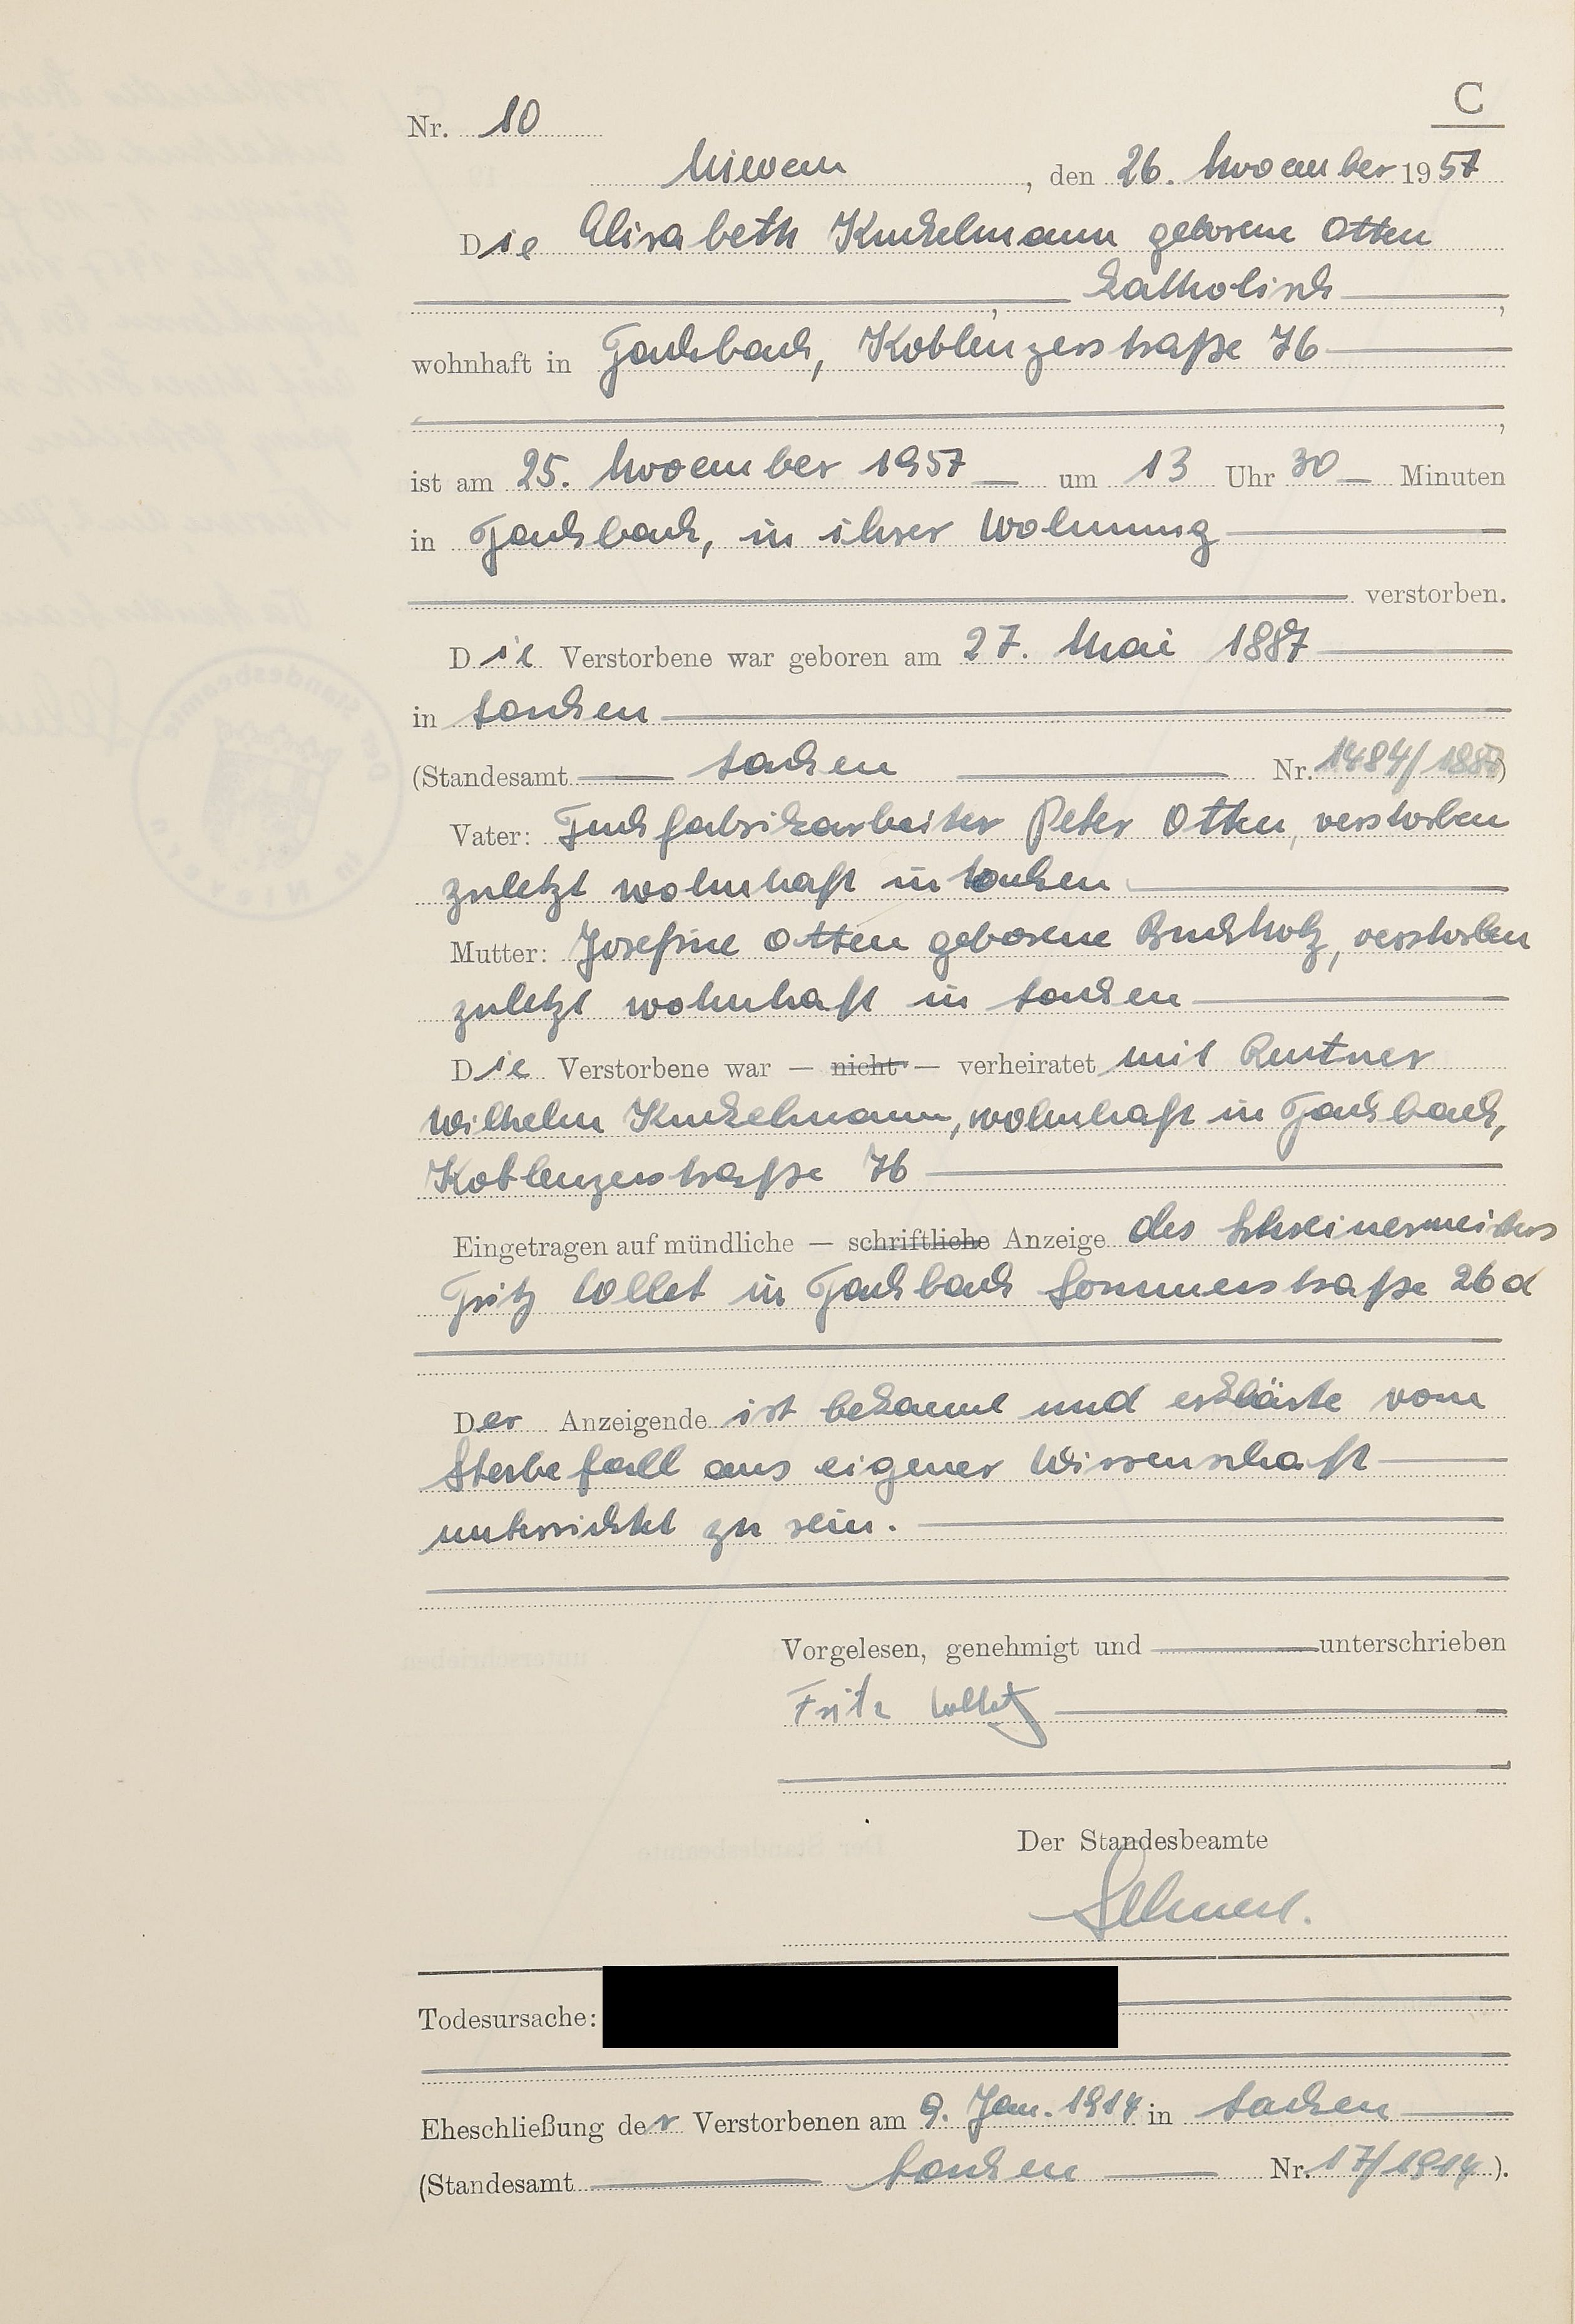 C
Nr. 10
Nievern, den 26. November 1957
Die Elisabeth Kuckelmann geborene Otten
katholisch,
wohnhaft in Fachbach, Koblenzerstraße 76
ist am 25. November 1957 um 13 Uhr 30 Minuten
in Fachbach, in ihrer Wohnung
verstorben.
Die Verstorbene war geboren am 27. Mai 1887
in Aachen
(Standesamt Aachen Nr. 1484/1887)
Vater: Tuchfabrikarbeiter Peter Otten, verstorben
zuletzt wohnhaft in Aachen
Mutter: Josefine Otten geborene Buchholz, verstorben
zuletzt wohnhaft in Aachen
Die Verstorbene war — nicht — verheiratet mit Rentner
Wilhelm Kuckelmann, wohnhaft in Fachbach,
Koblenzerstraße 76
Eingetragen auf mündliche — schriftliche Anzeige des Schreinermeisters
Fritz Collet in Fachbach Sommerstraße 26a
Der Anzeigende ist bekannt und erklärte vom
Sterbefall aus eigener Wissenschaft
unterrichtet zu sein.
Vorgelesen, genehmigt und unterschrieben
Fritz Collet
Der Standesbeamte
Todesursache:
Eheschließung der Verstorbenen am 9. Jan. 1914 in Aachen
(Standesamt Aachen Nr. 17/1914).